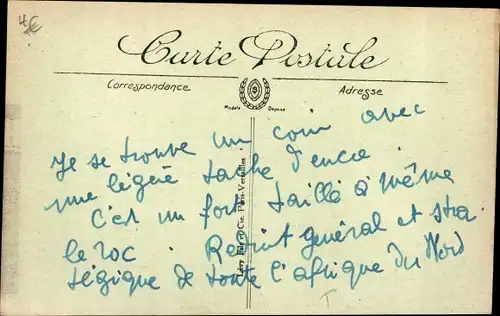 Carte Postale
Correspondance
Adresse
Modèle Déposé
Lévy Fils et Cie. Paris-Versailles
Je se trouve un cour avec
une légère tache d'encre
C'est un fort taillé à même
le roc. Point général et stra
tégique de toute l'afrique du Nord